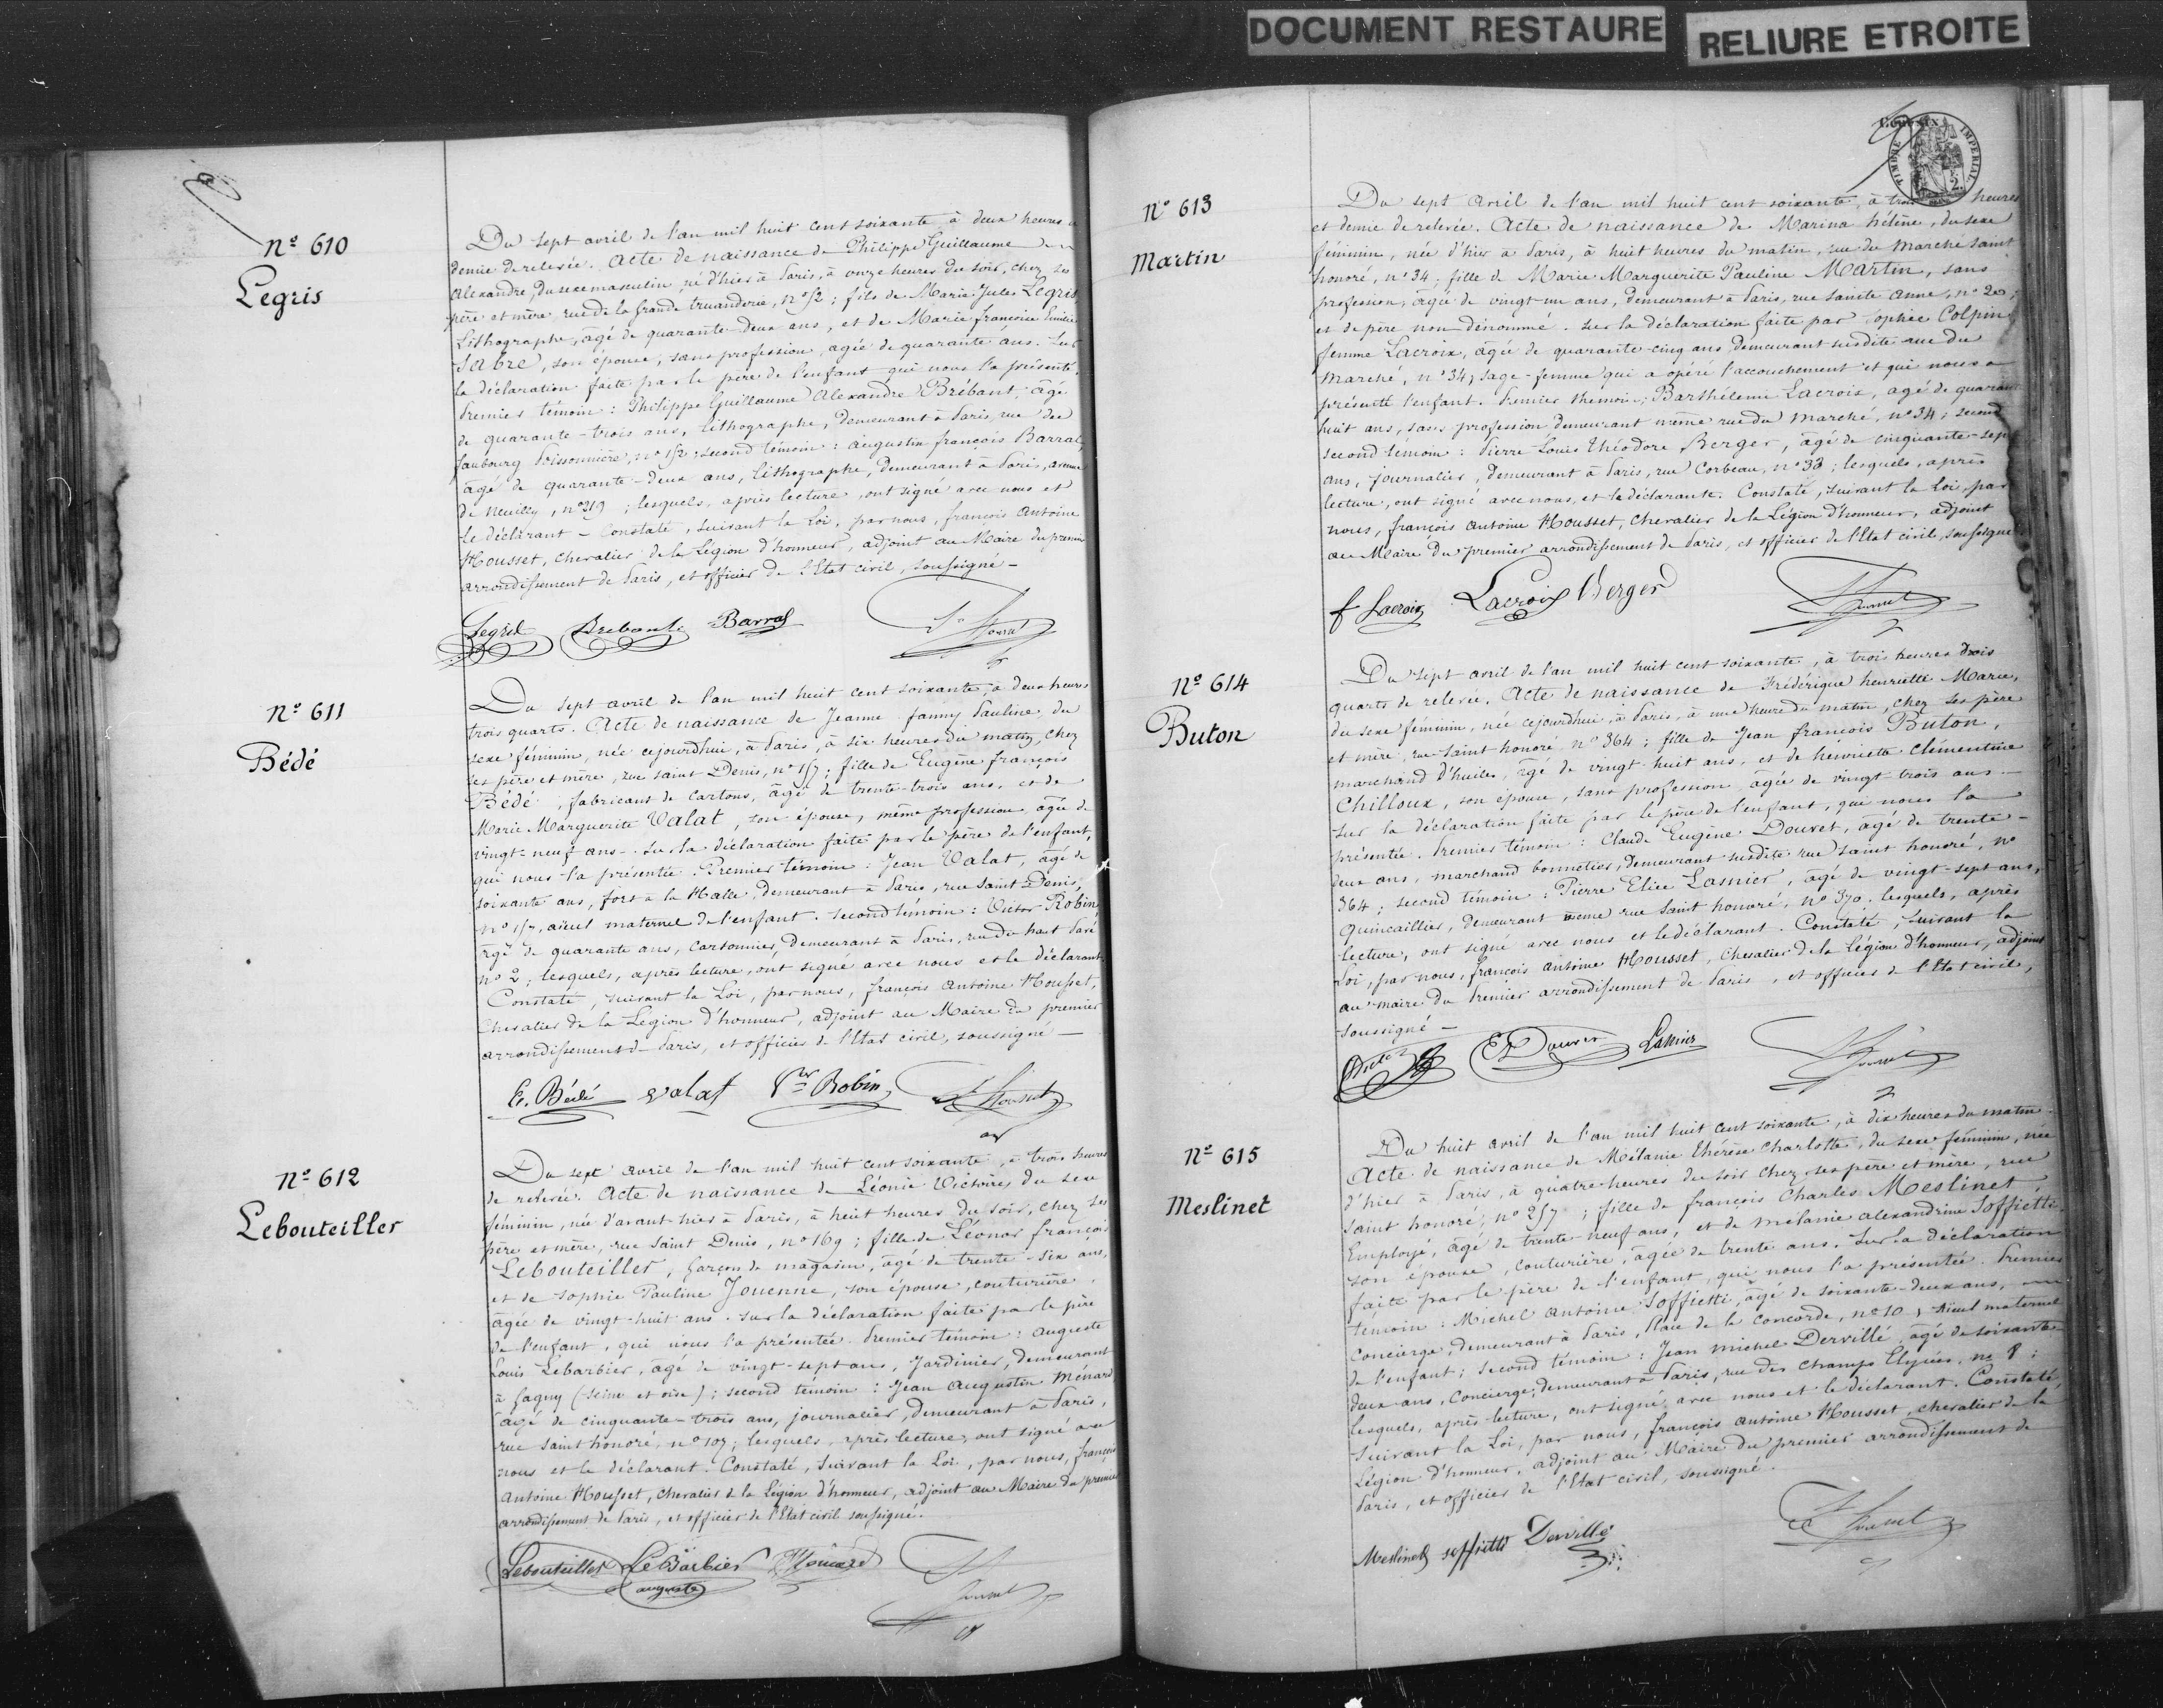 DOCUMENT RESTAURE
RELIURE ETROITE
N° 610
Legris
Du sept avril de l'an mil huit cent soixante à deux heures
demie de relevée. Acte de naissance de Philippe Guillaume
Alexandre, du sexe masculin, né d'hier à Paris, à onze heures du soir, chez ses
père et mère rue de la grande truanderie, n° 52 ; fils de Marie Jules Legris
Lithographe, âgé de quarante deux ans, et de Marie françoise Emilie
Sabre, son épouse, sans profession, agée de quarante ans. Sur
la déclaration faite par le père de l'enfant qui nous l'a présenté.
Premier témoin : Philippe Guillaume Alexandre Brébant, âgé
de quarante-trois ans, lithographe, demeurant à Paris, rue du
faubourg Poissonnière, n° 152 ; second témoin : augustin françois Barral,
âgé de quarante-deux ans, lithographe, demeurant à Paris, avenue
de Neuilly, n° 219 ; lesquels, après lecture, ont signé avec nous et
le déclarant - Constaté, suivant la Loi, par nous, françois Antoine
Housset, Chevalier de la Légion d'honneur, adjoint au Maire du premier
arrondissement de Paris, et officier de l'Etat civil, soussigné -
Legris Brebant Barral Housset
N° 611
Bédé
Du sept avril de l'an mil huit cent soixante, à deux heures
trois quarts. Acte de naissance de Jeanne fanny Pauline, du
sexe féminin, née cejourdhui, à Paris, à six heures du matin, chez
ses père et mère, rue saint Denis, n° 157 ; fille de Eugène françois
Bédé, fabricant de Cartons, âgé de trente-trois ans, et de
Marie Marguerite Valat, son épouse, même profession agée de
vingt-neuf ans -. Sur la déclaration faite par le père de l'enfant,
qui nous l'a présentée. Premier témoin : Jean Valat, âgé de
soixante ans, fort à la Halle, demeurant à Paris, rue Saint Denis,
n° 157, aïeul maternel de l'enfant. Second témoin : Victor Robin,
âgé de quarante ans, cartonnier, demeurant à Paris, rue du haut Pavé
n° 2 ; lesquels, après lecture, ont signé avec nous et le déclarant.
Constaté, suivant la Loi, par nous, françois Antoine Housset,
Chevalier de la Légion d'honneur, adjoint au Maire du premier
arrondissement de Paris, et officier de l'Etat civil, soussigné -
E. Bédé Valat Vor Robin Housset
N° 612
Lebouteiller
Du sept avril de l'an mil huit cent soixante, à trois heures
de relevée. Acte de naissance de Léonie Victoire, du sexe
féminin, née d'avant hier à Paris, à huit heures du soir, chez ses
père et mère, rue Saint Denis, n° 169 ; fille de Léonor françois
Lebouteiller, garçon de magasin, âgé de trente-six ans,
et de Sophie Pauline Jouenne, son épouse, couturière,
âgée de vingt-huit ans. Sur la déclaration faite par le père
de l'enfant, qui nous l'a présentée. Premier témoin : Auguste
Louis Lebarbier, âgé de vingt-sept ans, Jardinier, demeurant
à Gagny (Seine et oise) ; second témoin : Jean Augustin Ménard
âgé de cinquante-trois ans, journalier, demeurant à Paris,
rue Saint honoré, n° 107 ; lesquels, après lecture, ont signé avec
nous et le déclarant. Constaté, suivant la Loi, par nous, françois
Antoine Housset, Chevalier de la Légion d'honneur, adjoint au Maire du premier
arrondissement de Paris, et officier de l'Etat civil soussigné.
Lebouteiller LeBarbier auguste Ménard Housset
TIMBRE IMPERIAL
N° 613
Martin
Du sept avril de l'an mil huit cent soixante, à trois heures
et demie de relevée. Acte de naissance de Marina hélène, du sexe
féminin, née d'hier à Paris, à huit heures du matin, rue du Marché Saint
honoré, n° 34 ; fille de Marie Marguerite Pauline Martin, sans
profession, âgée de vingt-un ans, demeurant à Paris, rue Sainte Anne, n° 20 ;
et de père non dénommé. Sur la déclaration faite par Sophie Colpin
femme Lacroix, âgée de quarante-cinq ans, demeurant susdite rue du
Marché, n° 34, sage-femme qui a opéré l'accouchement et qui nous a
présenté l'enfant. Premier témoin ; Barthélemi Lacroix, agé de quarante
huit ans, sans profession demeurant même rue du Marché, n° 34 ; second
second témoin : Pierre Louis Théodore Berger, âgé de cinquante-sept
ans, journalier, demeurant à Paris, rue Corbeau, n° 33 ; lesquels, après
lecture, ont signé avec nous, et le déclarante. Constaté, suivant la Loi, par
nous, françois Antoine Housset, chevalier de la Légion d'honneur, adjoint
au Maire du premier arrondissement de Paris, et officier de l'Etat civil, soussigné
f Lacroix Lacroix Berger Housset
N° 614
Buton
Du sept avril de l'an mil huit cent soixante, à trois heures trois
quarts de relevée. Acte de naissance de Frédérique henriette Marie,
du sexe féminin, née cejourdhui, à Paris, à une heure du matin, chez ses père
et mère, rue Saint honoré n° 364 ; fille de Jean françois Buton,
marchand d'huiles, âgé de vingt-huit ans, et de henriette Clémentine
Chilloux, son épouse, sans profession, âgée de vingt trois ans -
Sur la déclaration faite par le père de l'enfant, qui nous l'a
présentée. Premier témoin : Claude Eugène Douvet, âgé de trente-
deux ans, marchand bonnetier, demeurant susdite rue Saint honoré, n°
364 ; second témoin : Pierre Elice Lasnier, âgé de vingt-sept ans,
Quincaillier, demeurant même rue Saint honoré, n° 370, lesquels, après
lecture, ont signé avec nous et le déclarant. Constaté, suivant la
Loi, par nous, françois Antoine Housset, chevalier de la Légion d'honneur, adjoint
au maire du Premier arrondissement de Paris, et officier de l'Etat civil,
soussigné -
Buton Douvet Lasnier Housset
N° 615
Meslinet
Du huit avril de l'an mil huit cent soixante, à dix heures du matin.
Acte de naissance de Mélanie thérèse Charlotte, du sexe féminin, née
d'hier à Paris, à quatre heures du soir chez ses père et mère, rue
Saint honoré, n° 257 ; fille de françois Charles Meslinet,
Employé, âgé de trente-neuf ans, et de mélanie alexandrine Soffietti
son épouse, couturière, âgée de trente ans. Sur la déclaration
faite par le père de l'enfant, qui nous l'a présentée. Premier
témoin : Michel Antoine Soffietti, âgé de soixante-deux ans,
concierge, demeurant à Paris, Place de la Concorde, n° 10, Aïeul maternel
de l'enfant ; second témoin : Jean Michel Dervillé, âgé de soixante
deux ans, Concierge, demeurant à Paris, rue des Champs Elysées, n° 8 ;
lesquels, après lecture, ont signé avec nous et le déclarant. Constaté,
suivant la Loi, par nous, françois Antoine Housset, chevalier de la
Légion d'honneur, adjoint au Maire du premier arrondissement de
Paris, et officier de l'Etat civil, soussigné.
Meslinet soffietti Dervillé Housset